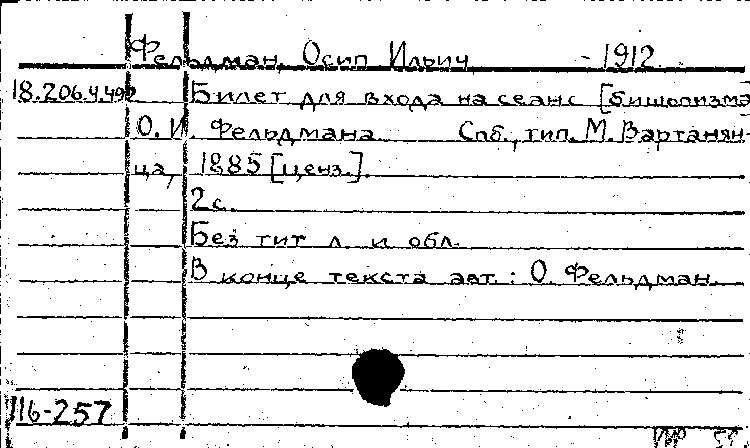 Фельдман, Осип Ильич - 1912
18.206.4.49
Билет для входа на сеанс
О. И. Фельдмана Спб., тип. М. Вартанян-
ца, 1885 [ценз.].
2 с.
Без тит л. и обл.
В конце текста авт.: О. Фельдман.
116-257